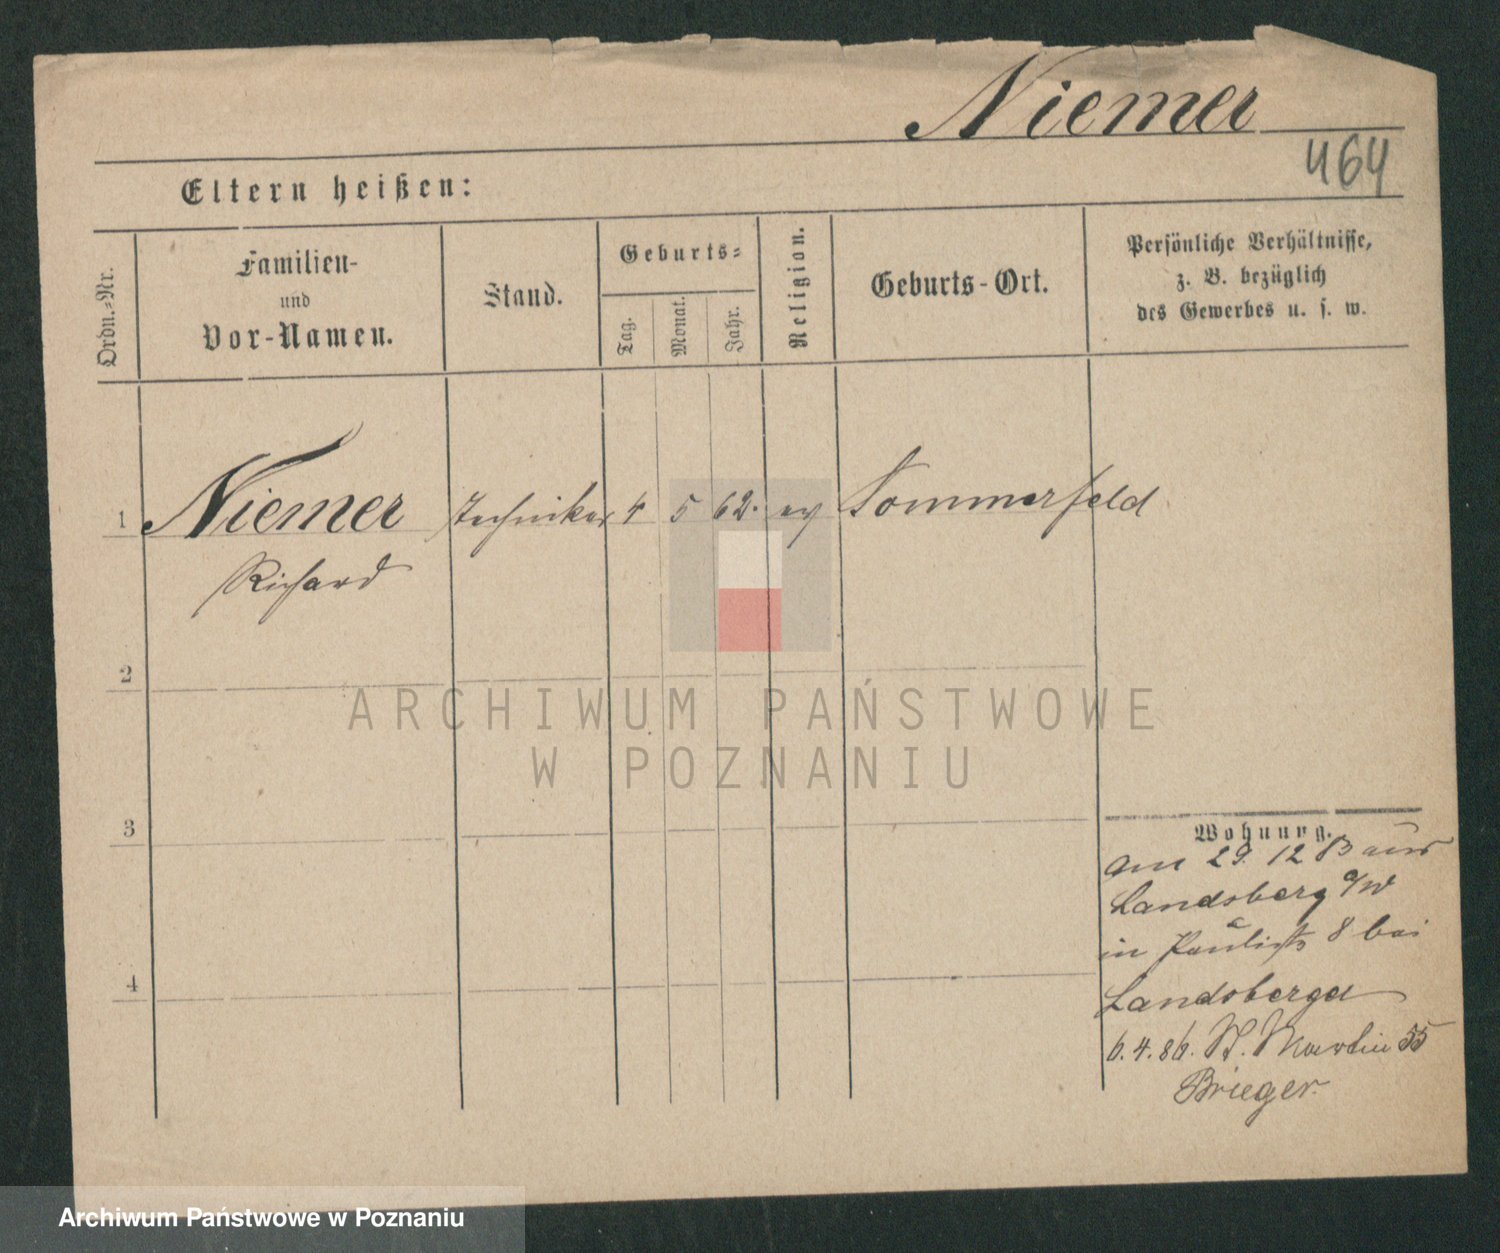 Niemer
464
Eltern heißen:
Ordn.-Nr.
Familien-
und
Vor-Namen.
Stand.
Geburts-
Tag.
Monat.
Jahr.
Religion.
Geburts-Ort.
Persönliche Verhältnisse,
z. B. bezüglich
des Gewerbes u. s. w.
1 Niemer Techniker 4 5 62. ev Sommerfeld
Richard
2
3
4
Wohnung.
am 29. 12 aus
Landsberg a/W
in 8 bei
Landsberger
6. 4. 86. St. Martin 55
Brieger.
ARCHIWUM PAŃSTWOWE
W POZNANIU
Archiwum Państwowe w Poznaniu